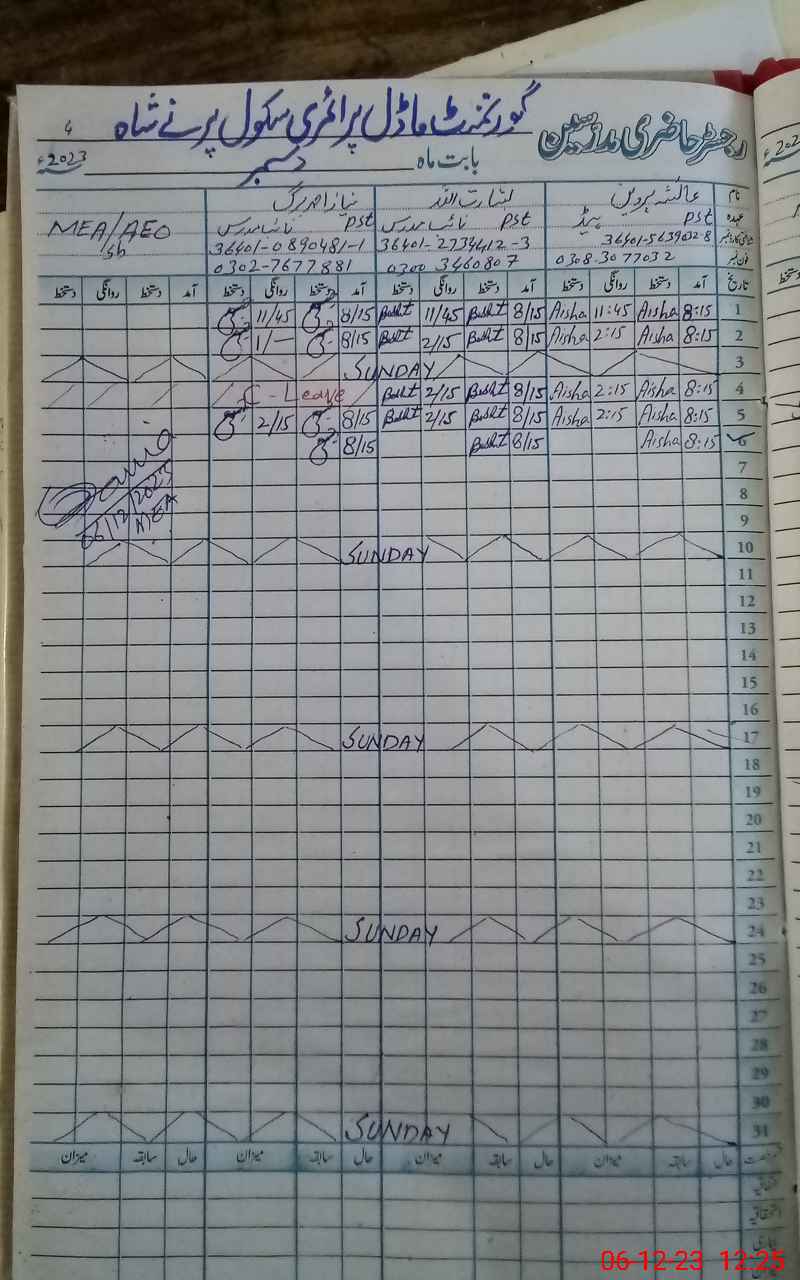 گورنمنٹ ماڈل پرائمری سکول پرنے شاہ
رجسٹر حاضری مدرسین
4
بابت ماہ دسمبر 2023ء
نام عائشہ پروین بشارت اللہ نیاز احمد برگ
عہدہ PST ہیڈ PST نائب مدرس PST نائب مدرس MEA/AEO
sb
36401-5639032-8 36401-2734412-3 36401-0890481-1
فون نمبر 0308-3077032 0300 3460807 0302-7677881
تاریخ آمد دستخط روانگی دستخط آمد دستخط روانگی دستخط آمد دستخط روانگی دستخط آمد دستخط روانگی دستخط
1 8:15 Aisha 11:45 Aisha 8/15 11/45 8/15 11/45
2 8:15 Aisha 2:15 Aisha 8/15 2/15 8/15 1/—
3 SUNDAY
4 8:15 Aisha 2:15 Aisha 8/15 2/15 C - Leave
5 8:15 Aisha 2:15 Aisha 8/15 2/15 8/15 2/15
6 8:15 Aisha 8/15 8/15
7
8
06/12/2023
MEA
9
10 SUNDAY
11
12
13
14
15
16
17 SUNDAY
18
19
20
21
22
23
24 SUNDAY
25
26
27
28
29
30
31 SUNDAY
حال سابقہ میزان حال سابقہ میزان حال سابقہ میزان حال سابقہ میزان
06-12-23 12:25